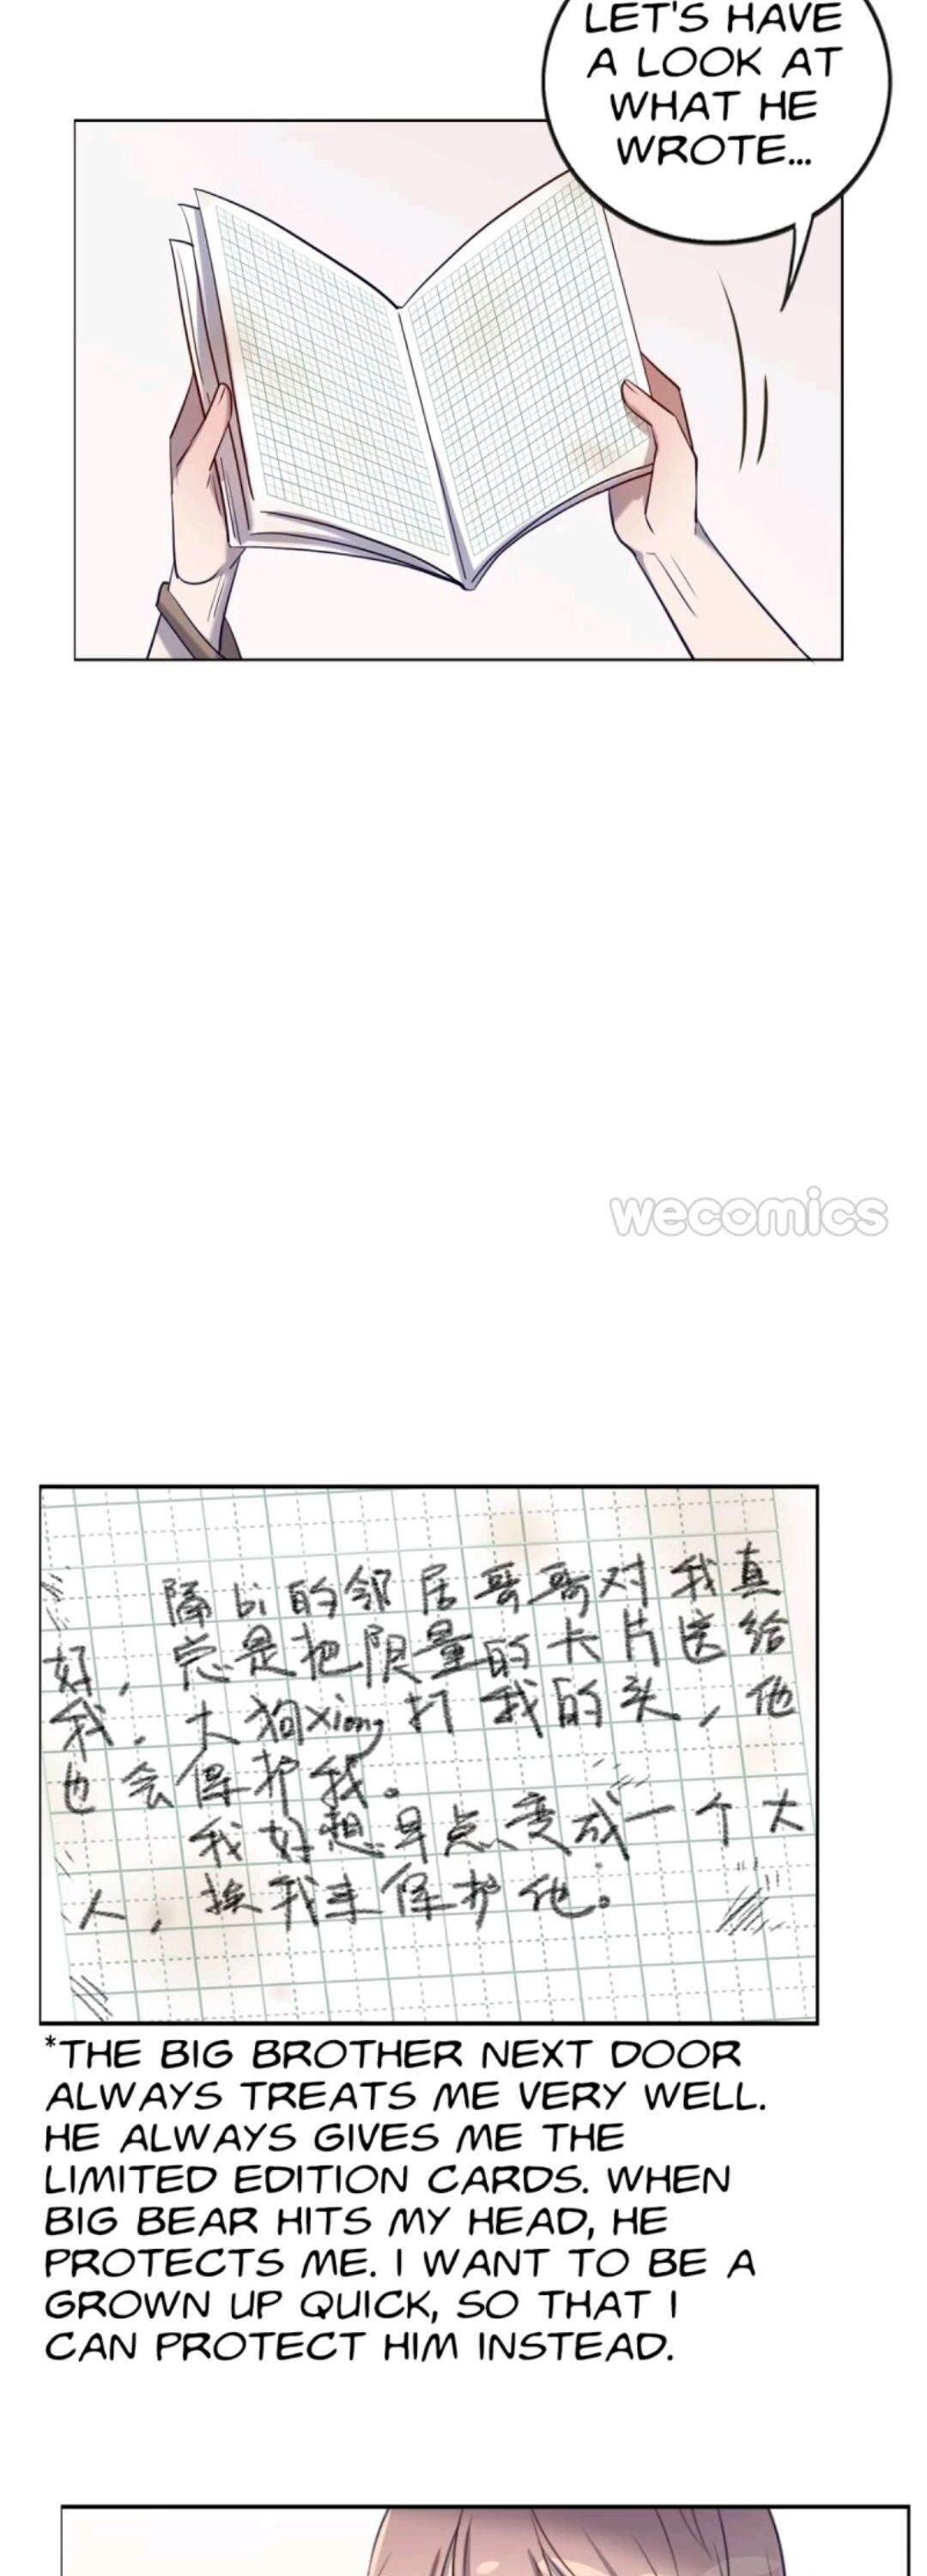 LET'S HAVE
A LOOK AT
WHAT HE
WROTE...
wecomics
隔bi的邻居哥哥对我真
好，总是把限量的卡片送给
我。大狗xiong打我的头，他
也会保护我。
我好想早点变成一个大
人，换我来保护他。
*THE BIG BROTHER NEXT DOOR
ALWAYS TREATS ME VERY WELL.
HE ALWAYS GIVES ME THE
LIMITED EDITION CARDS. WHEN
BIG BEAR HITS MY HEAD, HE
PROTECTS ME. I WANT TO BE A
GROWN UP QUICK, SO THAT I
CAN PROTECT HIM INSTEAD.